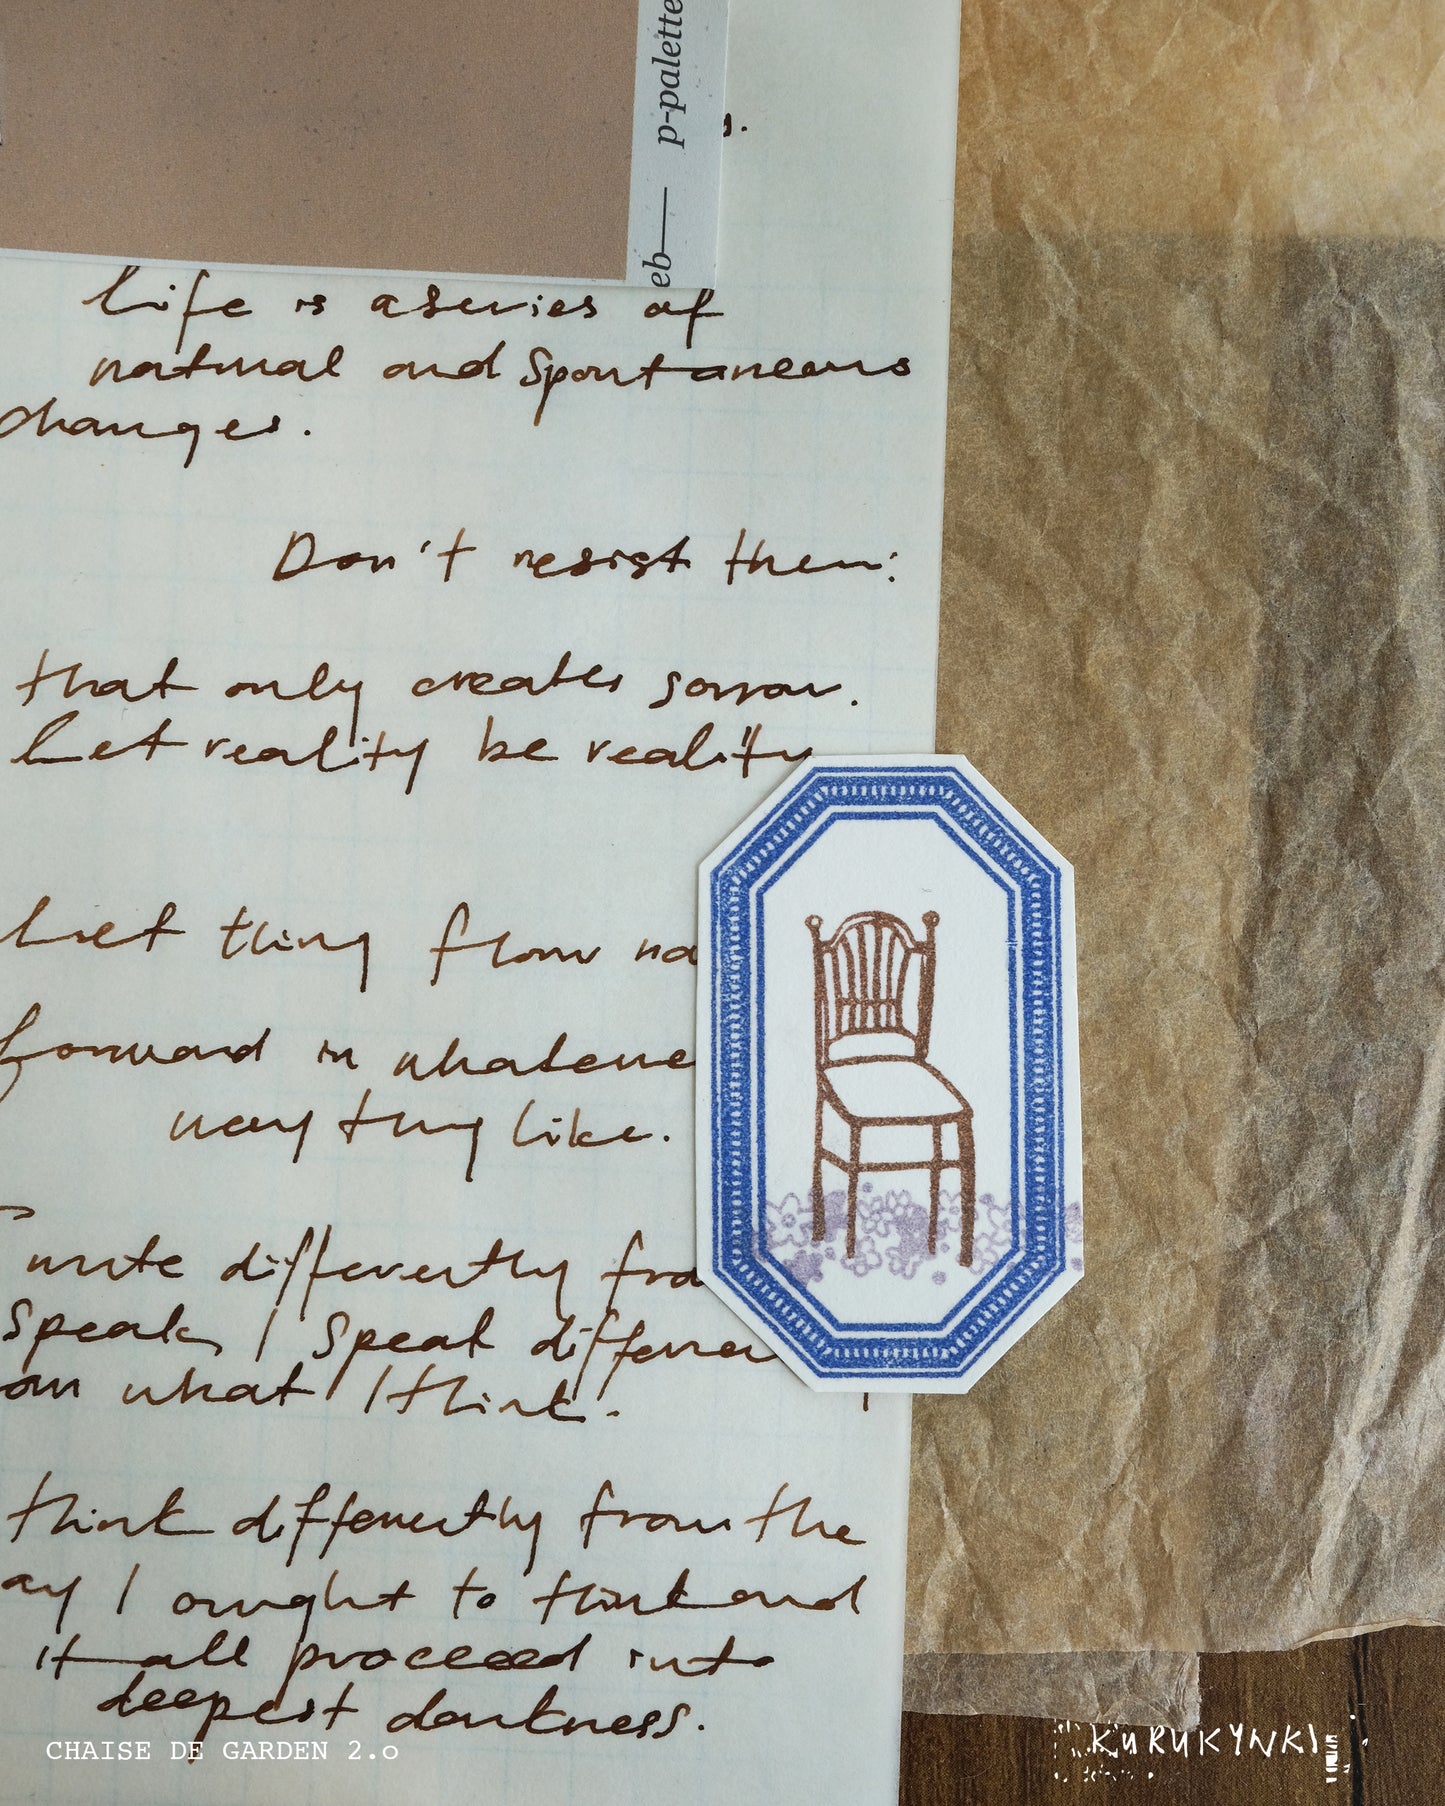 p-palette
eb
life is a series of
natural and spontaneous
changes.
Don't resist them:
that only creates sorrow.
Let reality be reality
Let thing flow na
forward in whateve
way thay like.
write differently fro
speak, I speak differen
om what I think.
think differently from the
ay I ought to think and
it all proceeed into
deepest darkness.
CHAISE DE GARDEN 2.0
KURUKYNKI